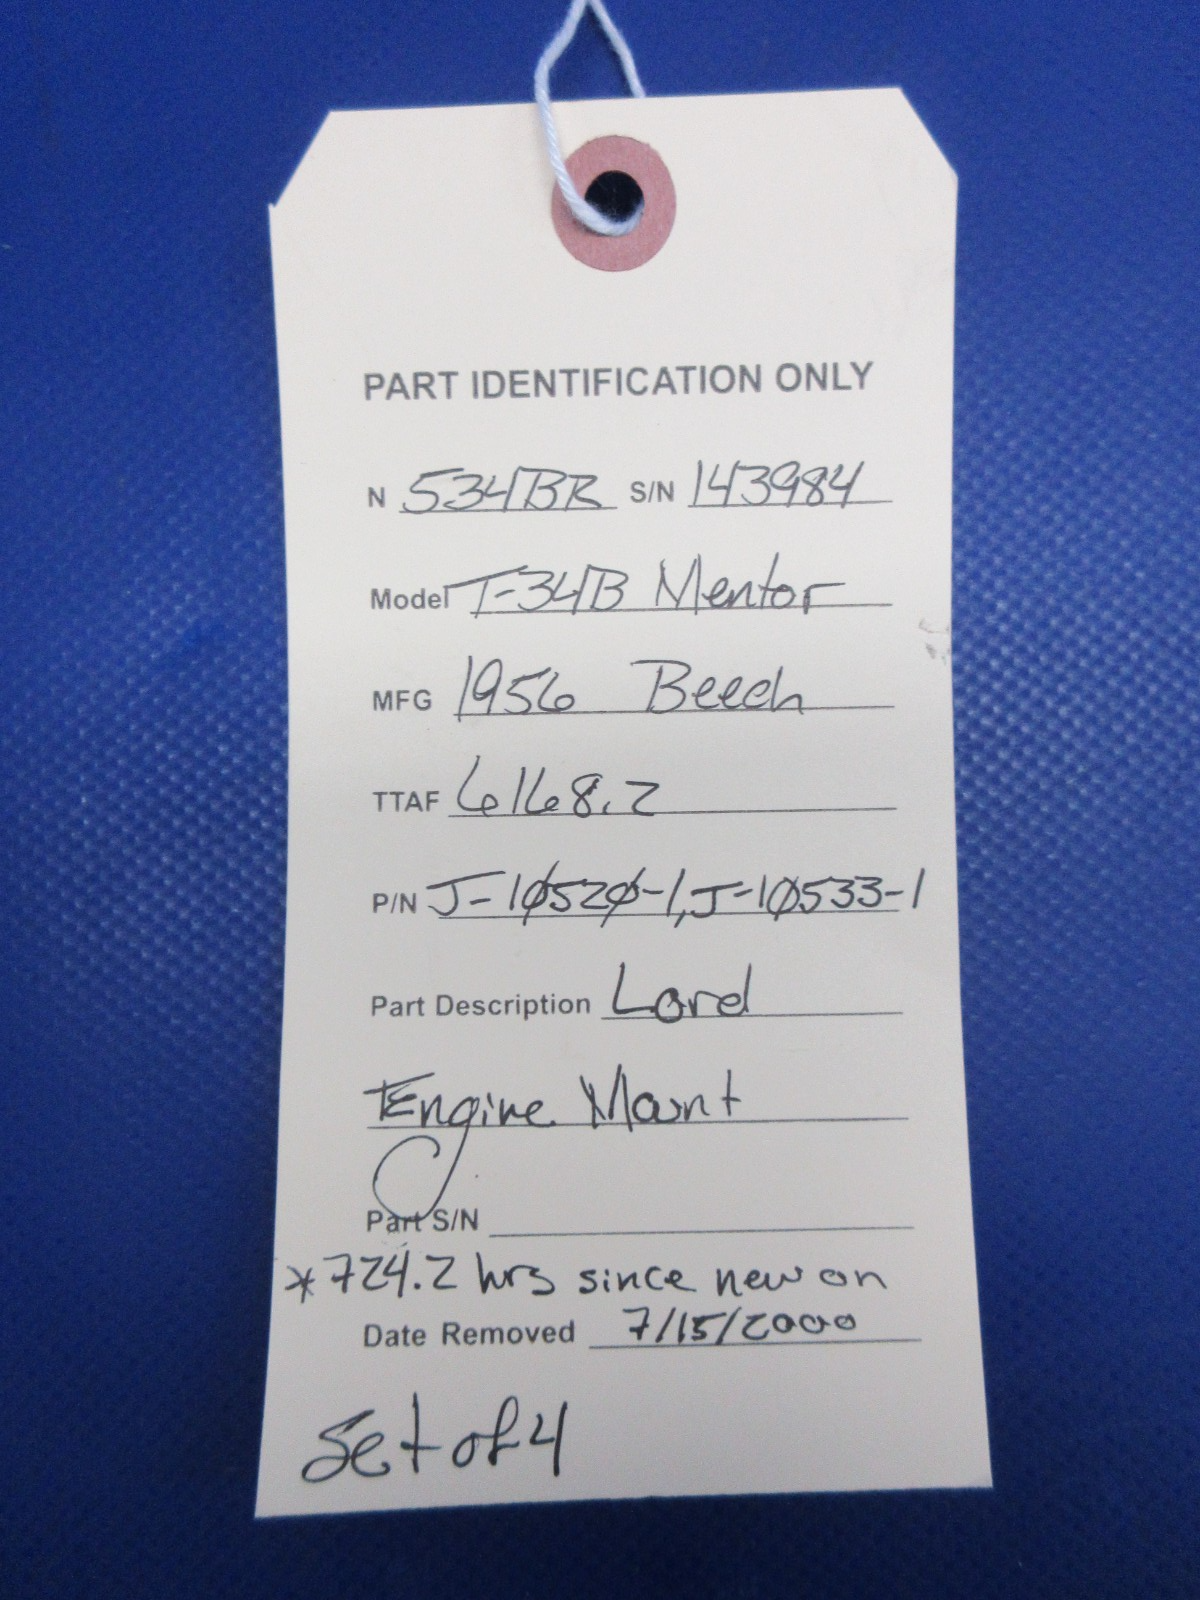 PART IDENTIFICATION ONLY
N 534BR S/N 143984
Model T-34B Mentor
MFG 1956 Beech
TTAF 6168.2
P/N J-10520-1, J-10533-1
Part Description Lord
Engine Mount
Part S/N
*724.2 hrs since new on
Date Removed 7/15/2000
Set of 4